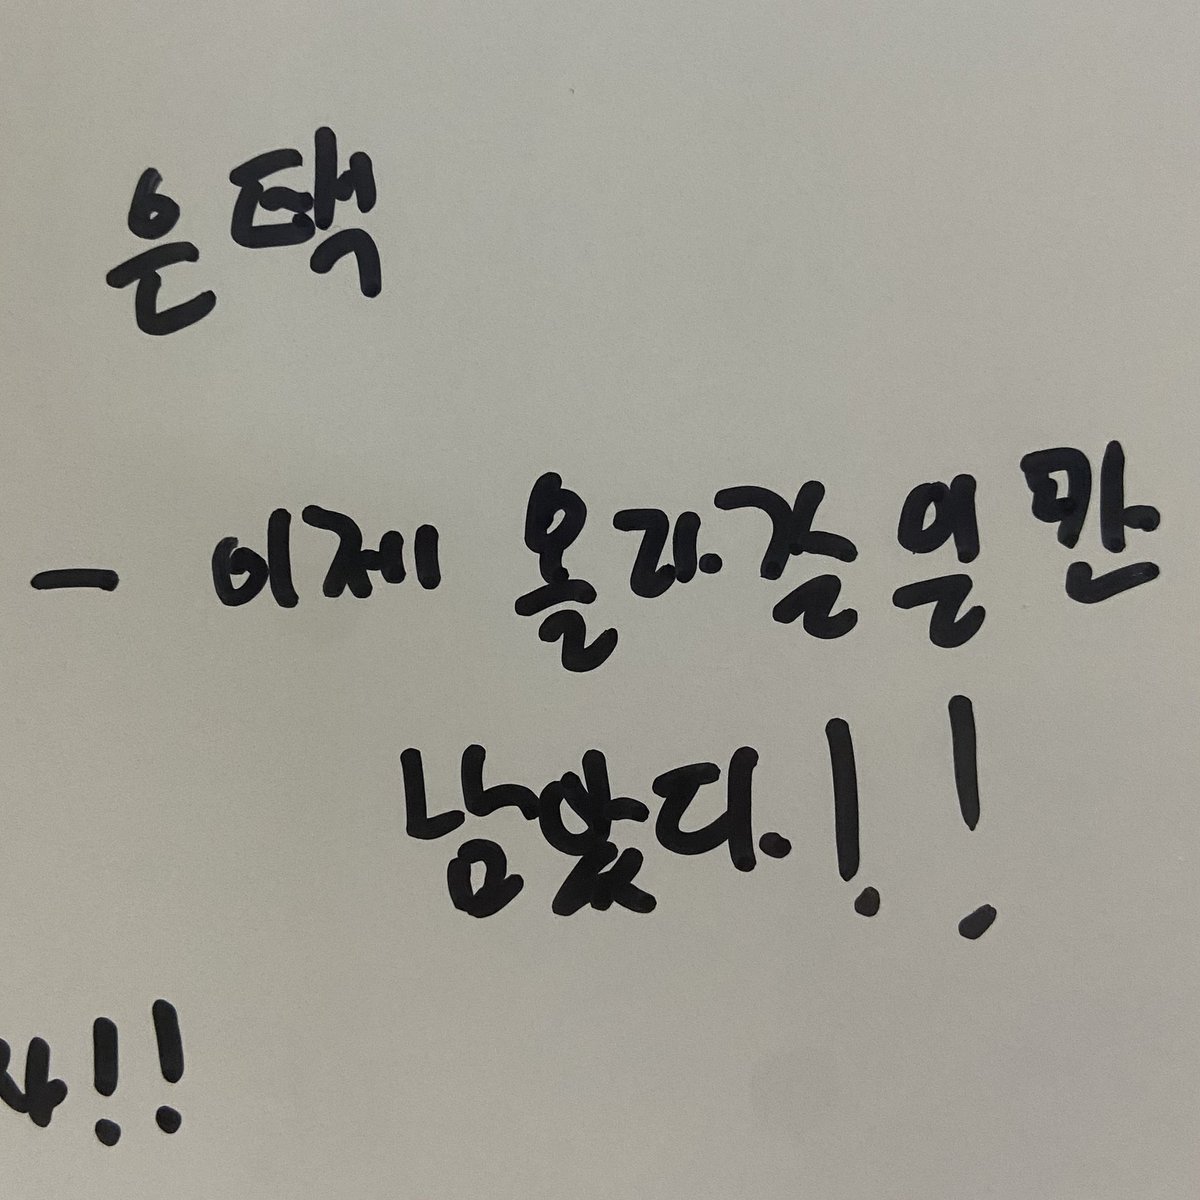 은택
- 이제 올라갈 일만
남았다.!!
!!